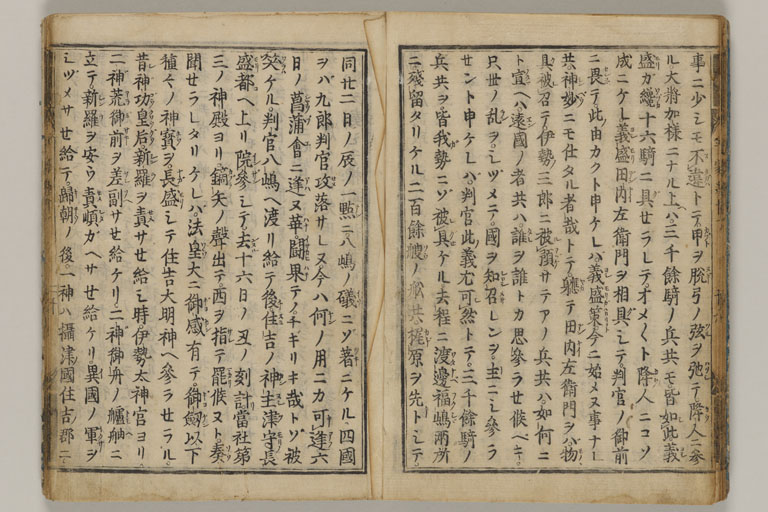 事ニ少シモ不違トテ甲ヲ脫弓ノ弦ヲ弛テ降人ニ參
ル大將加樣ニナル上ハ三千餘騎ノ兵共モ皆如此義
盛ガ纔十六騎ニ具セラレテオメ〱ト降人ニコソ
成ニケレ義盛田内左衛門ヲ相具シテ判官ノ御前
ニ畏テ此由カクト申ケレハ義盛䇿今ニ始メヌ事ナレ
共神妙ニモ仕タル者哉トテ軈テ田内左衛門ヲハ物
具被召テ伊勢三郎ニ被預サテアノ兵共ハ如何ニ
ト宣ヘハ遠國ノ者共ハ誰ヲ誰トカ思參ラセ候ベキ
只世ノ乱ヲシヅメテ國ヲ知召レンヲ主ニシ參ラ
セント申ケレバ判官此義尤可然トテ三千餘騎ノ
兵共ヲ皆我勢ニゾ被具ケル去程ニ渡邊福嶋兩所
ニ殘留タリケル二百餘艘ノ舩共梶原ヲ先トシテ
同廿二日ノ辰ノ一點ニ八嶋ノ礒ニゾ著ニケル四國
ヲバ九郎判官攻落サレヌ今ハ何ノ用ニカ可逢六
日ノ菖蒲會ニ逢ヌ華闘果テノチギリキ哉トゾ被
笑ケル判官八嶋ヘ渡リ給テ後住吉ノ神主津守長
盛都ヘ上リ院參シテ去十六日ノ丑ノ刻計當社第
三ノ神殿ヨリ鏑矢ノ聲出テ西ヲ指テ罷候ヌト奏
聞セラレタリケレバ法皇大ニ御感有テ御劔以下
種々ノ神寳ヲ長盛シテ住吉大明神ヘ參ラセラル
昔神功皇后新羅ヲ責サセ給シ時伊勢太神宮ヨリ
二神荒御前ヲ差副サセ給ケリ二神御舟ノ艫舳ニ
立テ新羅ヲ安ウ責傾ガヘサセ給ケリ異國ノ軍ヲ
シヅメサセ給テ歸朝ノ後一神ハ攝津國住吉郡ニ